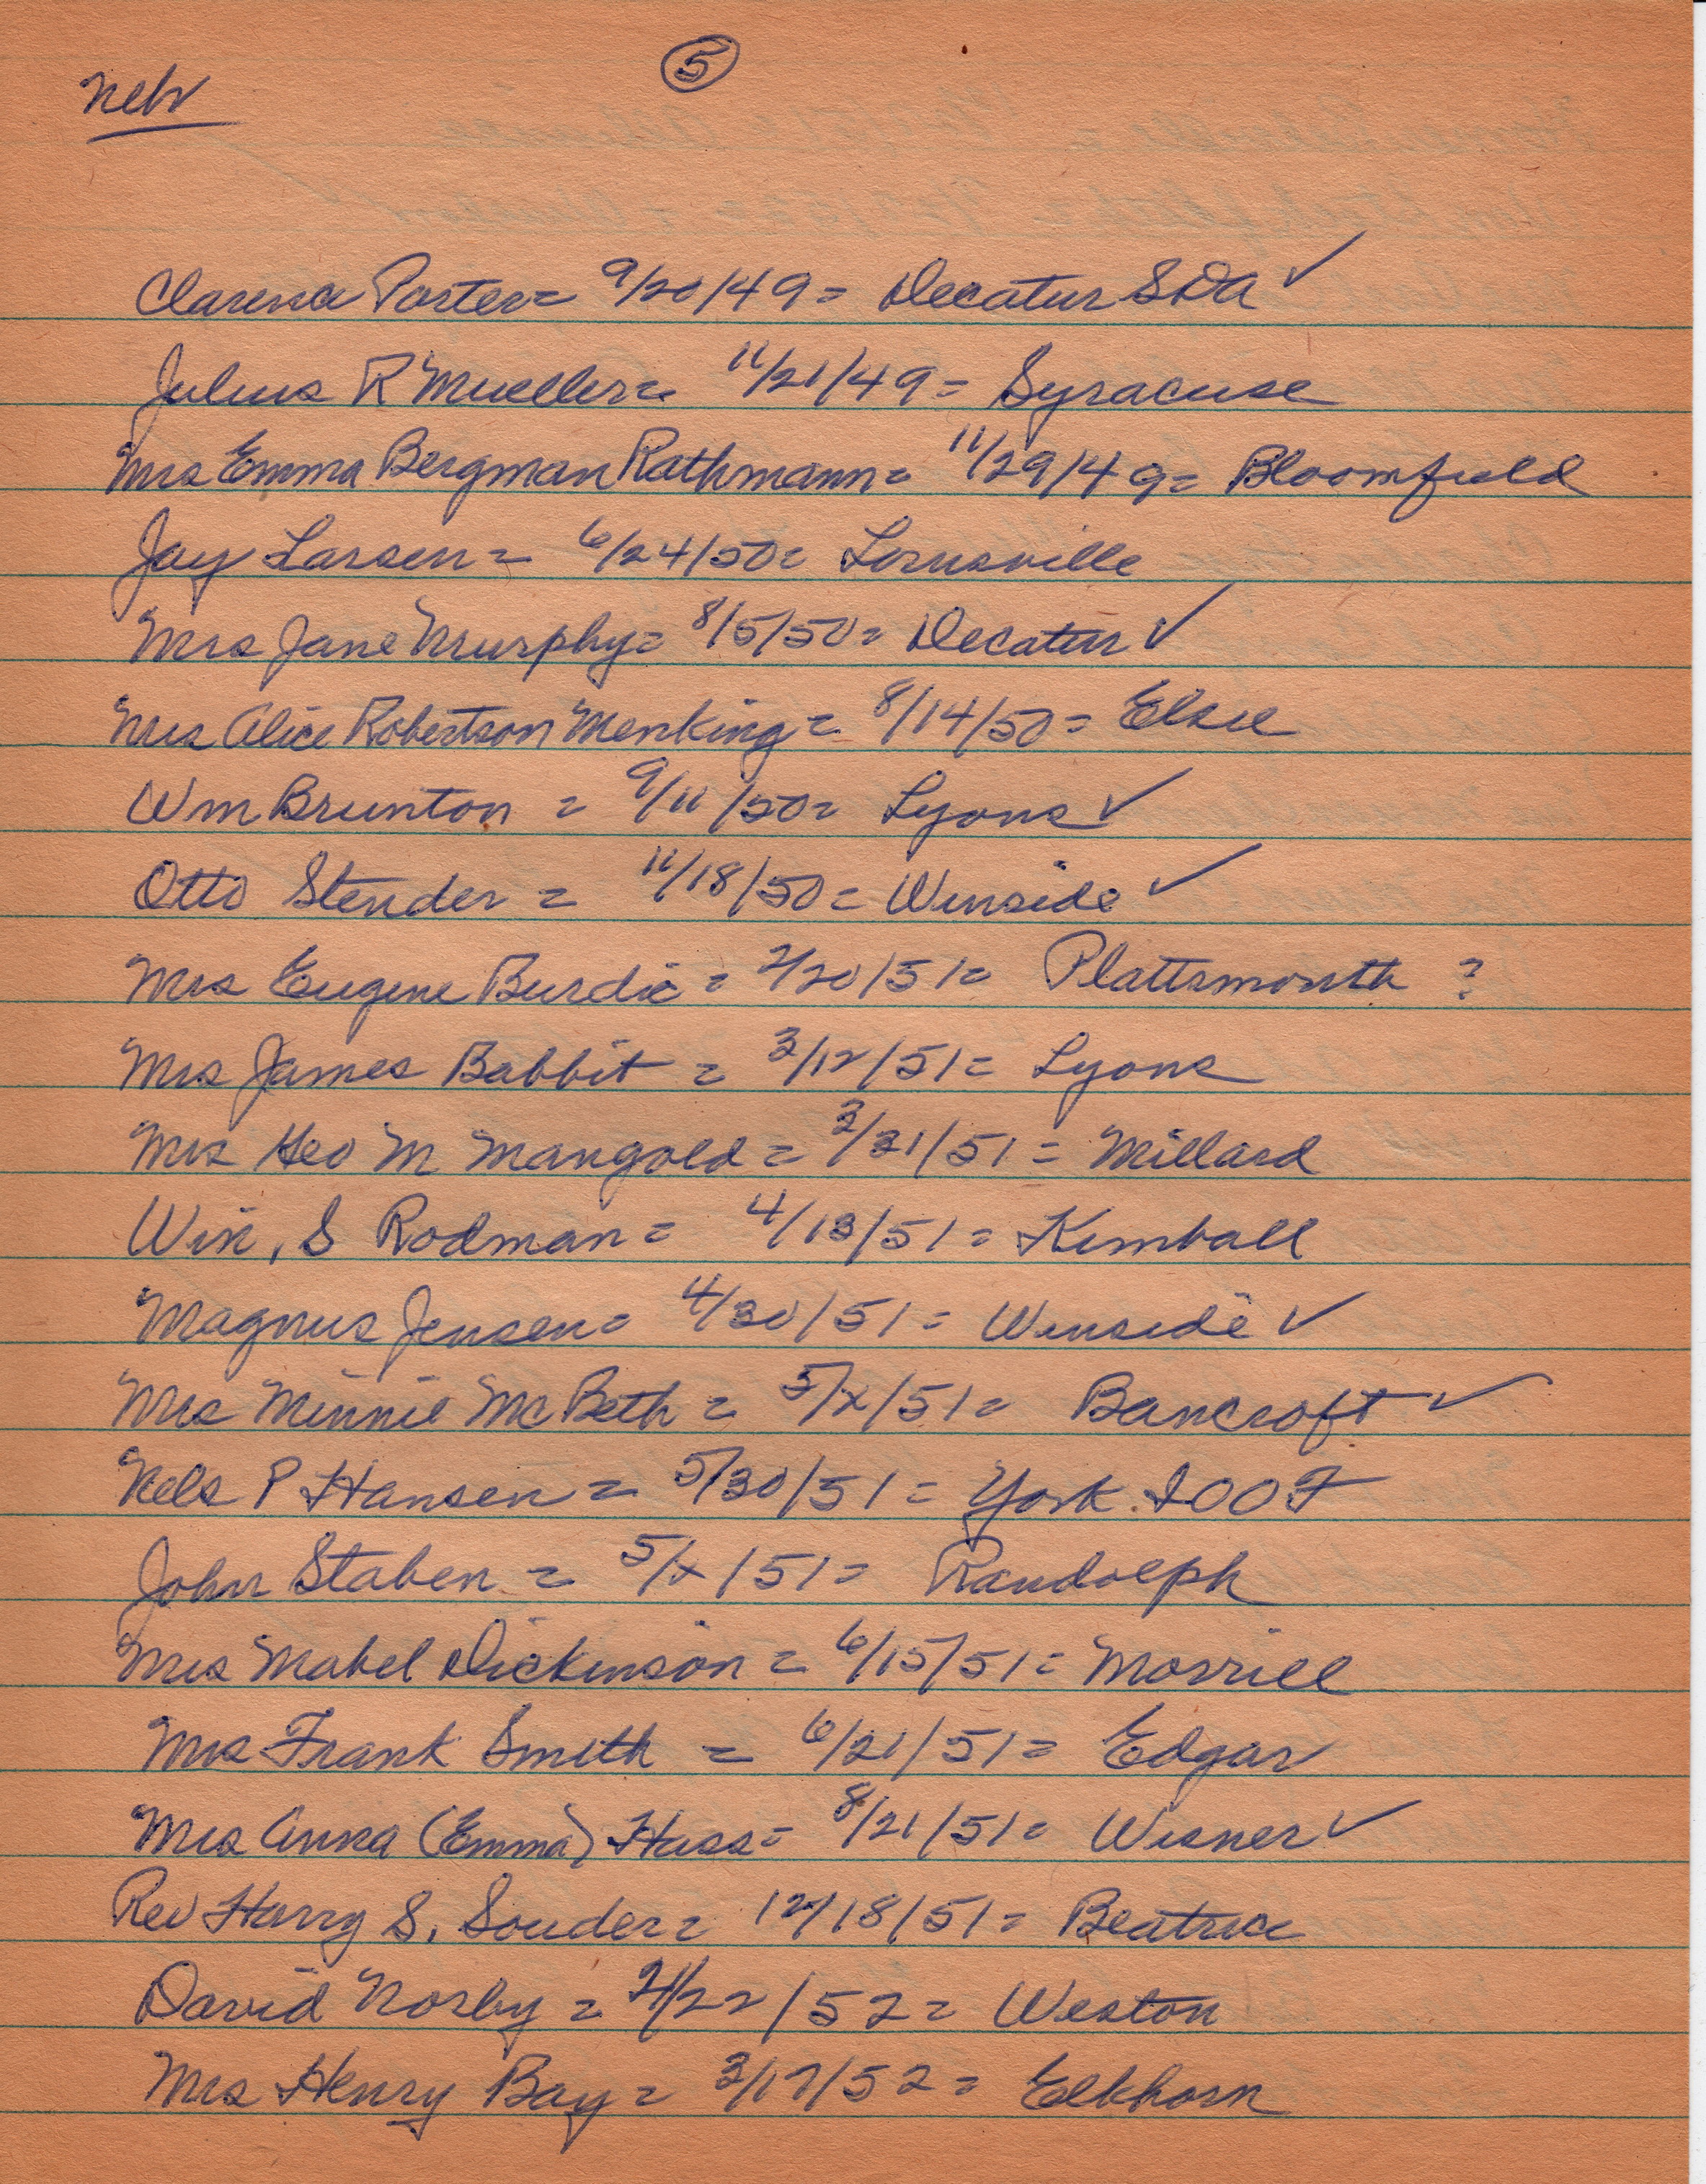 5
Nebr
Clarence Porter = 9/20/49 = Decatur SDA ✓
Julius R Mueller = 11/21/49 = Syracuse
Mrs Emma Bergman Rathmann = 11/29/49 = Bloomfield
Jay Larsen = 6/24/50 =
Mrs Jane Murphy = 8/5/50 = Decatur ✓
Mrs Alice Robertson Menking = 8/14/50 = Elsie
Wm Brunton = 9/11/50 = Lyons ✓
Otto Stender = 11/18/50 = Winside ✓
Mrs Eugene Burdic = 2/20/51 = Plattsmouth ?
Mrs James Babbit = 3/12/51 = Lyons
Mrs Geo M Mangold = 3/31/51 = Millard
Wm. S Rodman = 4/13/51 = Kimball
Magnus Jensen = 4/30/51 = Winside ✓
Mrs Minnie McBeth = 5/x/51 = Bancroft ✓
Nels P Hansen = 5/30/51 = York. IOOF
John Staben = 5/x/51 = Randolph
Mrs Mabel Dickinson = 6/15/51 = Morrill
Mrs Frank Smith = 6/21/51 = Edgar
Mrs Anna (Emma) Hass = 8/21/51 = Wisner ✓
Rev Harry S. Souder = 12/18/51 = Beatrice
David Norby = /22/52 = Weston
Mrs Henry Bay = 3/17/52 = Elkhorn